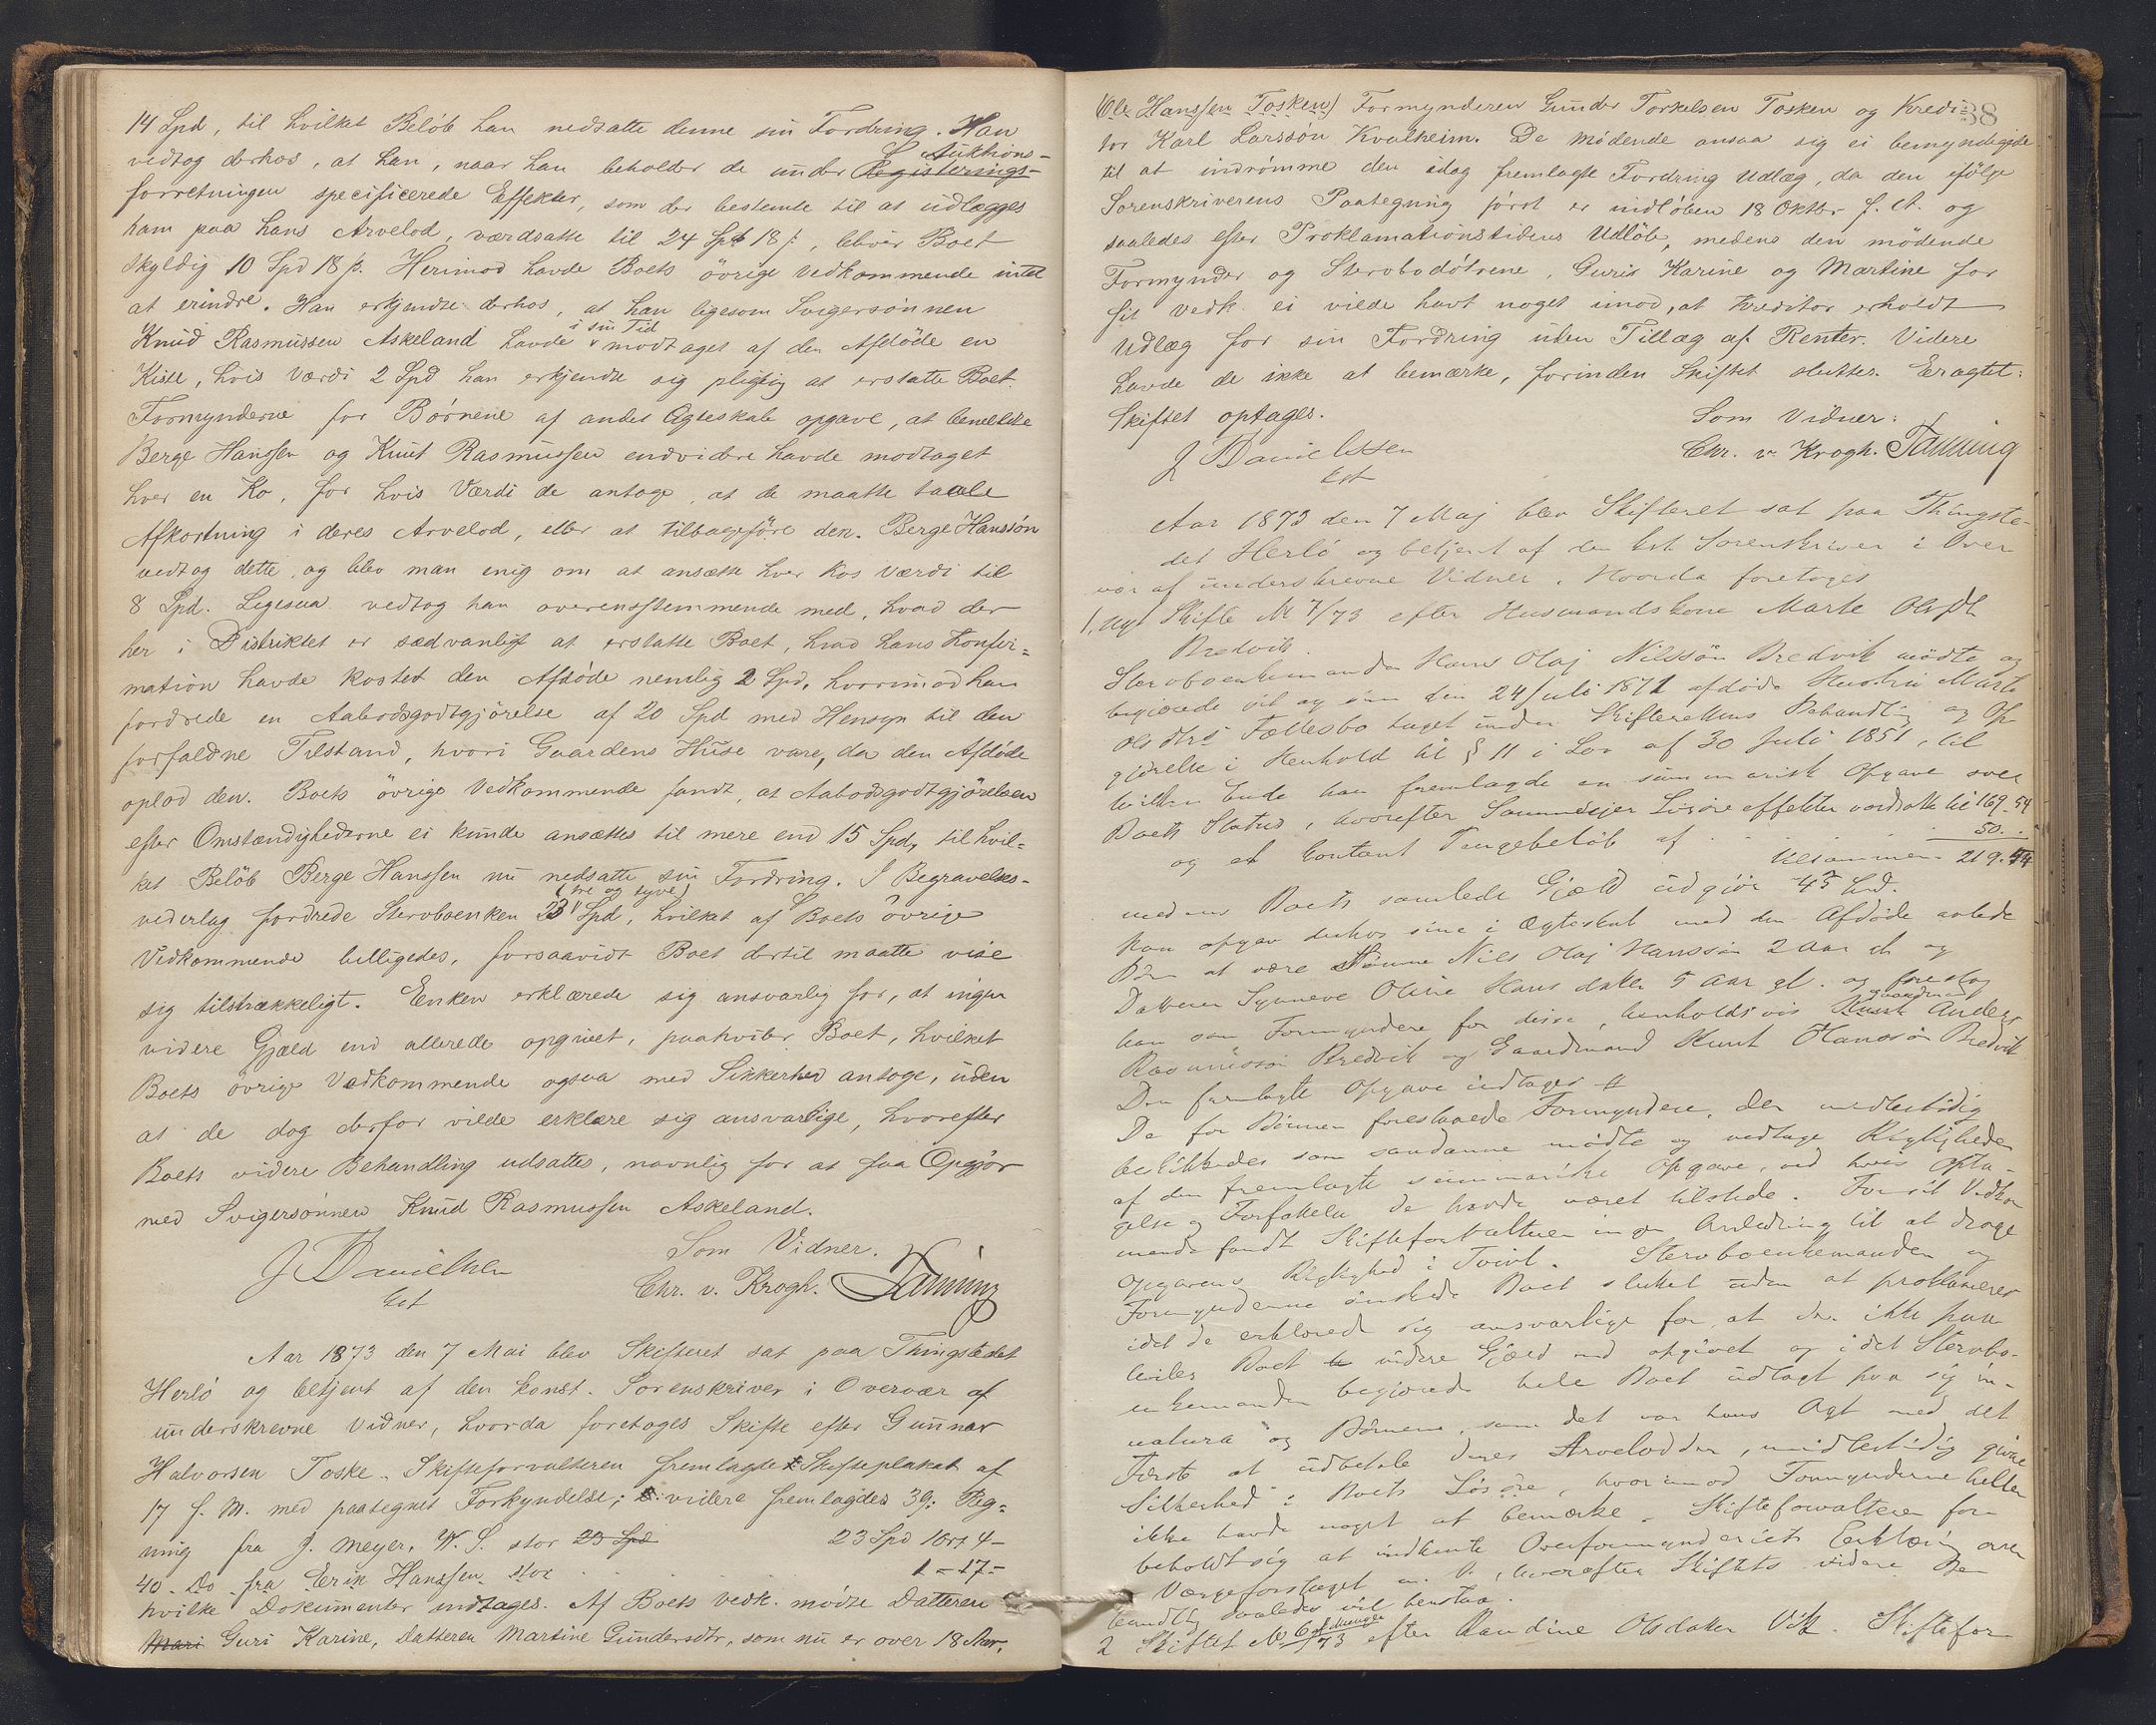 14 Spd, til hvilket Beløb han nedsatte denne sin Fordring. Han
vedtog derhos, at han, naar han beholder de under Registerings- Auktions-
forretningen specificerede Effekter, som der bestemte til at udlægges
ham paa hans Arvelod, værdsatte til 24 Spd 18 s, bliver Boet
skyldig 10 Spd 18 s. Herimod havde Boets øvrige Vedkommende intet
at erindre. Han erkjendte derhos, at han ligesom Svigersønnen
Knud Rasmussen Askeland havde i sin Tid modtaget af den Afdøde en
Kiste, hvis Værdi 2 Spd han erkjendte sig pligtig at erstatte Boet.
Formynderne for Børnene af andet Ægteskab opgave, at bemeldte
Berge Hanssen og Knut Rasmussen endvidere havde modtaget
hver en Ko, for hvis Værdi de antoge, at de maatte taale
Afkortning i deres Arvelod, eller at tilbageføre den. Berge Hanssøn
vedtog dette, og blev man enig om at ansætte hver Kos Værdi til
8 Spd. Ligesaa vedtog han overensstemmende med, hvad der
her i Distriktet er sædvanligt at erstatte Boet, hvad hans Konfir=
mation havde kostet den Afdøde nemlig 2 Spd, hvorimod han
fordrede en Aabodsgodtgjørelse af 20 Spd med Hensyn til den
forfaldne Tilstand, hvori Gaardens Huse vare, da den Afdøde
oplod den. Boets øvrige Vedkommende fandt, at Aabodsgodtgjørelsen
efter Omstændighederne ei kunde ansættes til mere end 15 Spd, til hvil=
ket Beløb Berge Hanssen nu nedsatte sin Fordring. I Begravelses-
vederlag fordrede Stervboenken 23 (tre og tyve) Spd, hvilket af Boets øvrige
Vedkommende billigedes, forsaavidt Boet dertil maatte vise
sig tilstrækkeligt. Enken erklærede sig ansvarlig for, at ingen
videre Gjæld end allerede opgivet, paahviler Boet, hvilket
Boets øvrige Vedkommende ogsaa med Sikkerhed antoge, uden
at de dog derfor vilde erklære sig ansvarlige, hvorefter
Boets videre Behandling udsattes, navnlig for at faa Opgjør
med Svigersønnen Knud Rasmussen Askeland.
Som Vidner.
J Danielssen
cst
Chr. v. Krogh. Fanning
Aar 1873 den 7 Mai blev Skifteret sat paa Thingstedet
Herlø og betjent af den konst. Sorenskriver i Overvær af
underskrevne Vidner, hvorda foretoges Skifte efter Gunnar
Halvorsen Toske. Skifteforvalteren fremlagde Skifteplakat af
17 f. M. med paategnet Forkyndelse; videre fremlagdes 39: Reg=
ning fra J. Meyer, W. S. stor 23 Spd 23 Spd 1 ort 4-
40. Do fra Erik Hanssen stor 1-17-
hvilke Dokumenter indtages. Af Boets Vedk. mødte Datteren
Mari Guri Karine, Datteren Martine Gundersdtr, som nu er over 18 Aar,
38
(Ole Hanssen Tosken) Formynderen Gunder Torkelsen Tosken og Kredi=
tor Karl Larssøn Kvalheim. De mødende ansaa sig ei bemyndigede
til at indrømme den idag fremlagte Fordring Udlæg, da den ifølge
Sorenskriverens Paategning først er indløben 18 Oktbr f. A. og
saaledes efter Proklamationstidens Udløb, medens den mødende
Formynder og Stervbodøtrene, Guris Karine og Martine for
sit Vedk. ei vilde havt noget imod, at Kreditor erholdt
Udlæg for sin Fordring uden Tillæg af Renter. Videre
havde de ikke at bemærke, forinden Skiftet sluttes. Eragtet:
Skiftet optages.
Som Vidner:
J Danielssen
cst
Chr. v. Krogh. Fanning
Aar 1873 den 7 Maj blev Skifteret sat paa Thingste-
det Herlø og betjent af den kst. Sorenskriver i Over
vær af underskrevne Vidner. Hvorda foretoges
1. Nyt Skifte No 7/73 efter Husmandskone Marte Olsdtr
Bredvik.
Stervboenkemanden Hans Olaj Nilssøn Bredvik mødte og
begjærede sit og sin den 24 Juli 1871 afdøde Hustru Marte
Olsdtrs Fællesbo taget under Skifterettens Behandling og Op
gjørelse i Henhold til § 11 i Lov af 30 Juli 1851, til
hvilken Ende han fremlagde en summarisk Opgave over
Boets Status, hvorefter Sammes Løsøreeffekter værdsatte til 169-54
og et Contant Pengebeløb af . . . 50. .
tilsammen 219-54
medens Boets samlede Gjæld udgjør 45 Spd.
Han opgav derhos sine i Ægteskab med den Afdøde avlede
Børn at være Sønnen Nils Olaj Hanssøn 2 Aar gl. og
Datteren Synneve Oline Hansdatter 5 Aar gl. og foreslog
han som Formyndere for disse, henholdsvis Gaardmand Anders
Rasmussøn Bredvik og Gaardmand Knut Hanssøn Bredvik
Den fremlagte Opgave indtages #
De for Børnene foreslaaede Formyndere, der midlertidig
beskikkedes som saadanne mødte og vedtoge Rigtigheden
af den fremlagte summariske Opgave, ved hvis Opta-
gelse og Forfattelse de havde været tilstede. For sit Vedkom
mende fandt Skifteforvalteren ingen Anledning til at drage
Opgavens Rigtighed i Tvivl. Stervboenkemanden og
Formynderne ønskede Boet sluttet uden at proklameres
idet de erklærede sig ansvarlige for, at der ikke paa
hviler Boet videre Gjæld end opgivet og idet Stervbo-
enkemanden begjærede hele Boet udlagt paa sig in-
natura og Børnene, som det var hans Agt med det
Første at udbetale deres Arvelodder, midlertidig givne
Sikkerhed i Boets Løsøre, hvorimod Formynderne heller
ikke havde noget at bemærke. Skifteforvalteren for
beholdt sig at indhente Overformynderiets Erklæring over
Værgeforslaget m. V., hvorefter Skiftets videre Be
handling saaledes vil henstaa.
2 Skiftet No 6/73 efter Randine Olsdatter Vik. Skiftefor